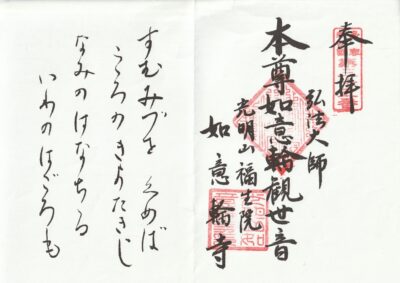 奉拝
弘法大師
本尊如意輪観世音
光明山福生院
如意輪寺
すむみづを くめば
こころの きよたきじ
なみのはなちる
いわのはごろも